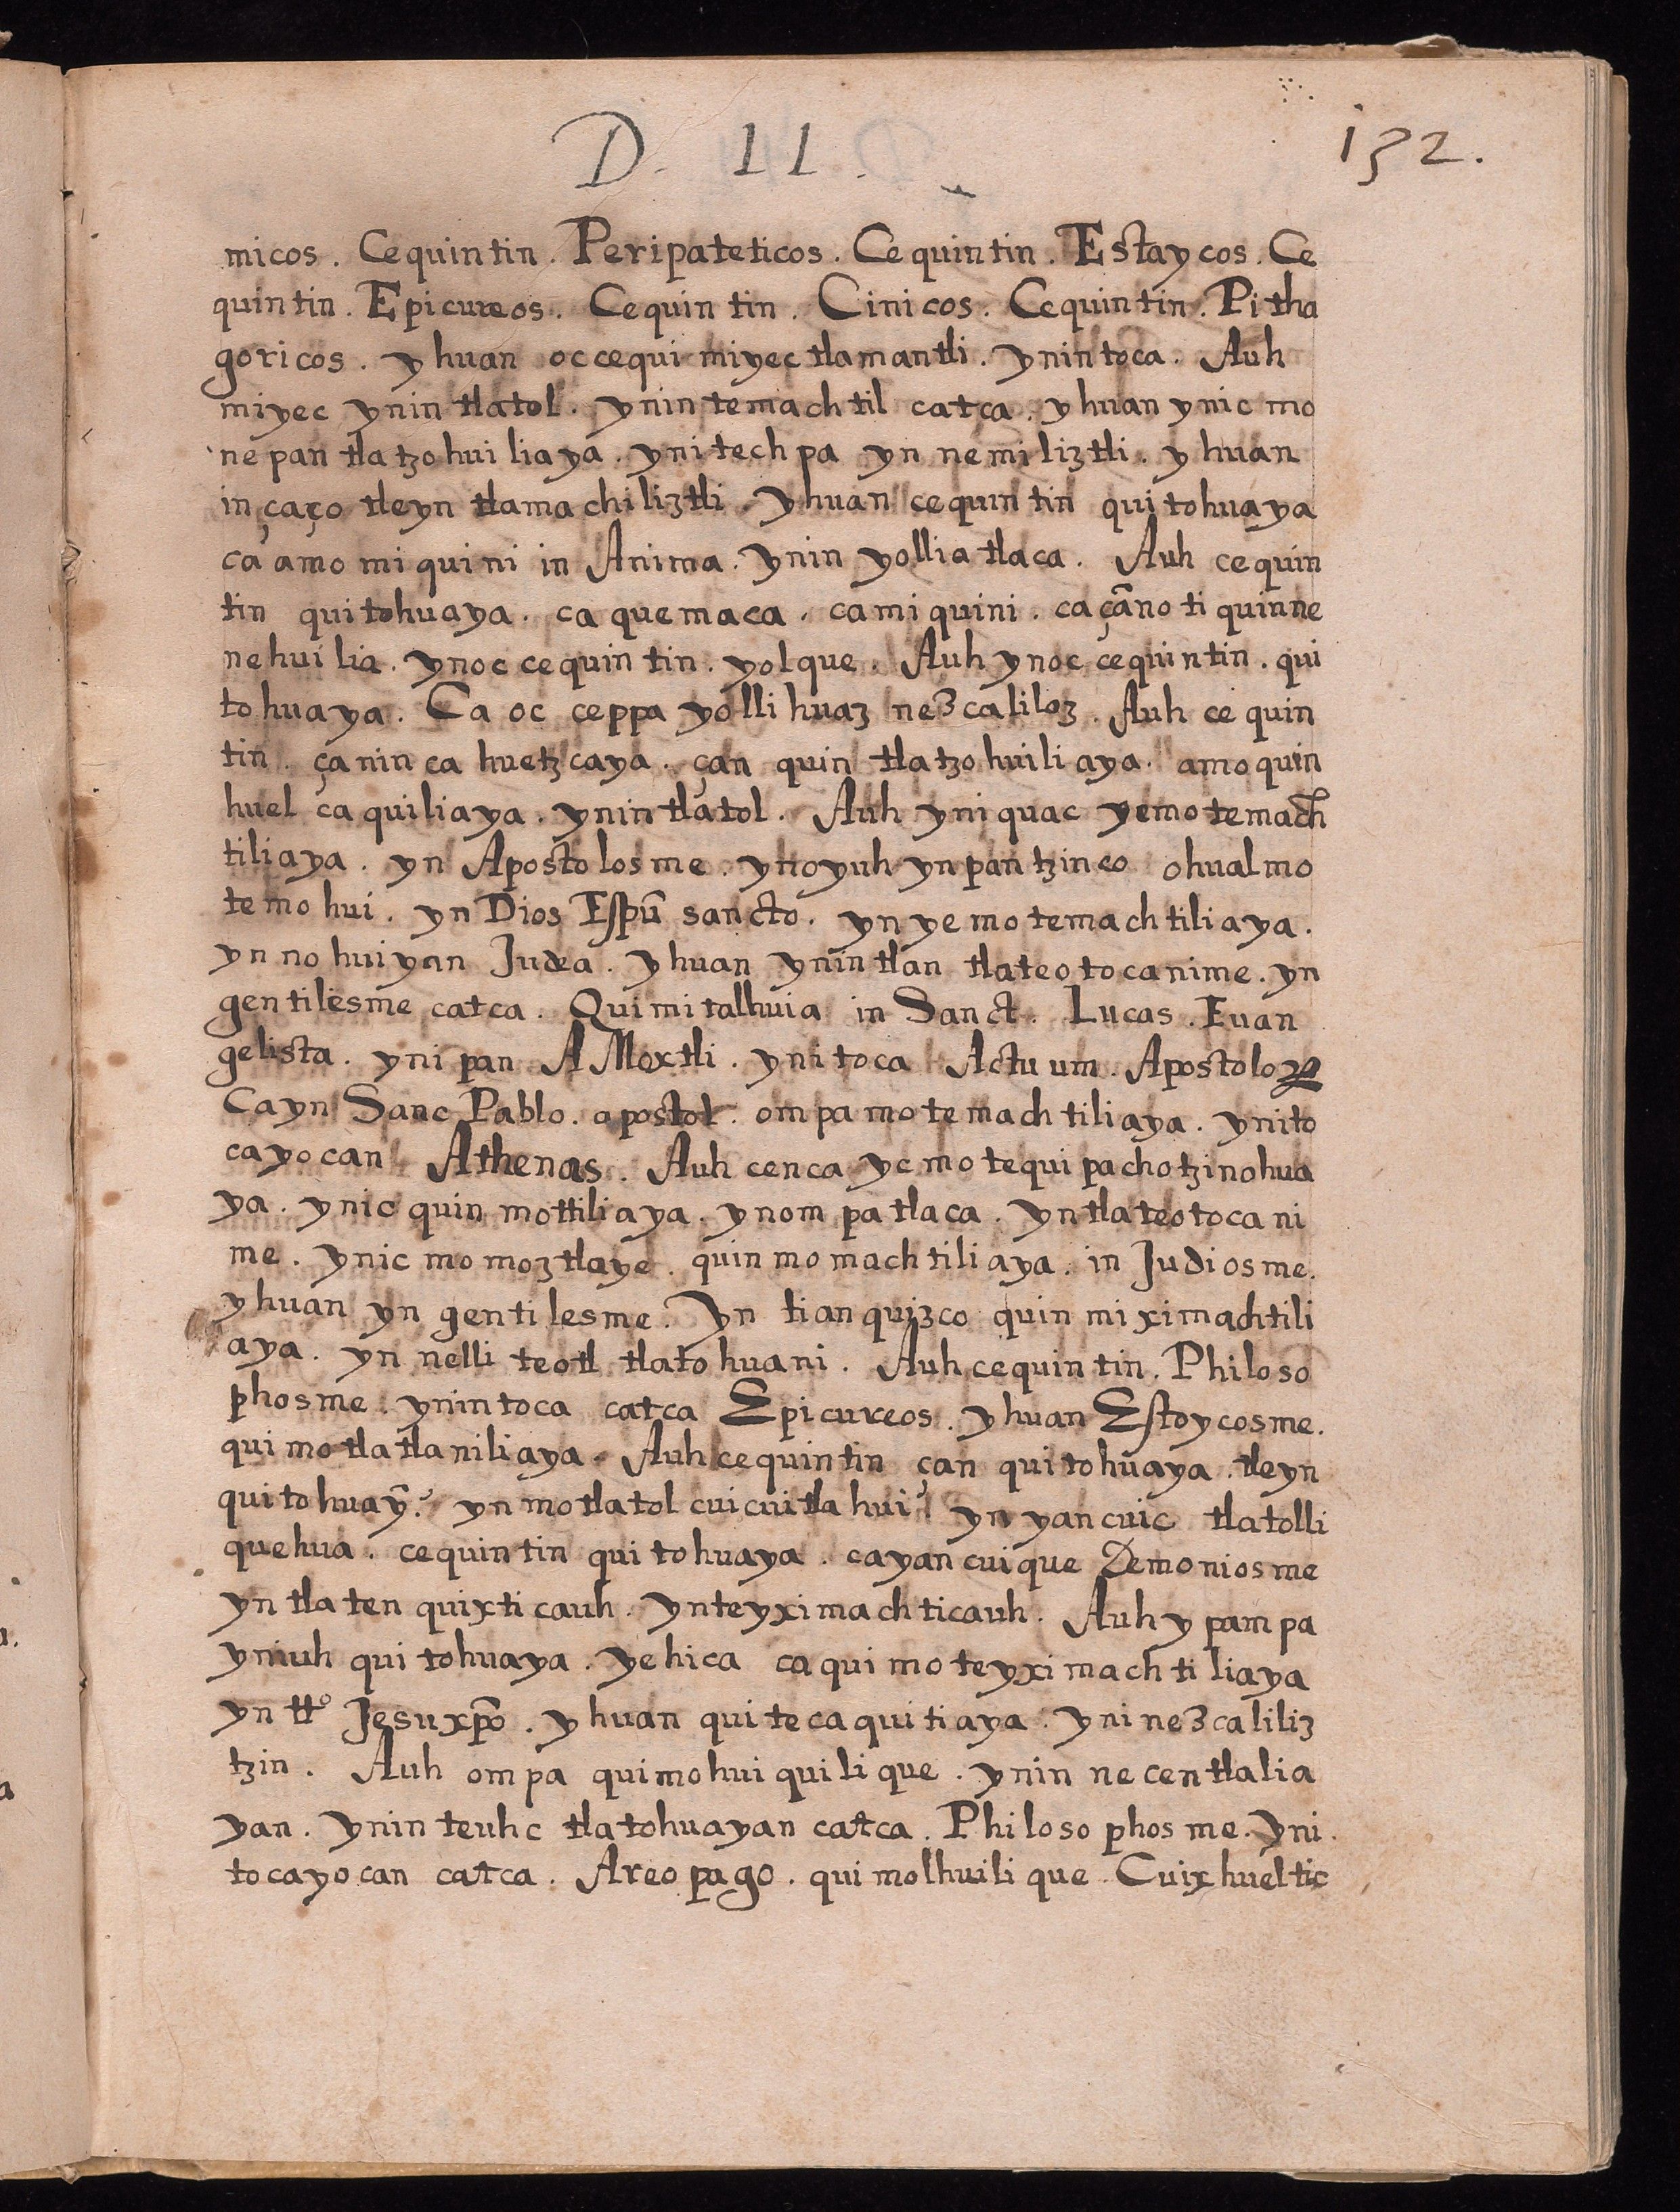 D. 11.
132.
micos. Cequintin. Peripateticos. Cequintin. Estaycos. Ce
quintin. Epicureos. Cequintin. Cinicos. Cequintin. Pitha
goricos. yhuan occequi miyec tlamantli. ynintoca. Auh
miyec ynin tlatol. ynintemachtil catca. yhuan ynic mo
nepan tlatzohuiliaya. ynitechpa yn nemiliztli. yhuan
in çaço tleyn tlamachiliztli. yhuan cequintin quitohuaya
ca amo miquini in Anima. ynin yollia tlaca. Auh cequin
tin quitohuaya. ca quemaca. ca miquini. ca çãno ti quinne
nehuilia. ynoc cequintin. yolque. Auh ynoc cequintin. qui
tohuaya. Ca oc ceppa yollihuaz nezcaliloz. Auh cequin
tin. çan inca huetzcaya. çan quin tlatzohuiliaya. amo quin
huel caquiliaya. ynin tlatol. Auh yniquac yemotemach
tiliaya. yn Apostolosme. ynoyuh ynpantzinco ohualmo
temohui. yn Dios Espũ sancto. yn ye motemachtiliaya.
yn nohuiyan Judea. yhuan ynintlan tlateotocanime. yn
gentilesme catca. Quimitalhuia in Sanct. Lucas. Euan
gelista. ynipan AMoxtli. ynitoca Actuum. Apostoloꝝ
Cayn Sanc Pablo. apostol. ompa motemachtiliaya. ynito
cayocan Athenas. Auh cenca yc motequipachotzinohua
ya. ynic quinmottiliaya. ynompa tlaca. yntlateotocani
me. ynic momoztlaye. quinmomachtiliaya. in Judiosme.
yhuan yn gentilesme. Yn tianquizco quinmiximachtili
aya. yn nelli teotl tlatohuani. Auh cequintin. Philoso
phosme. ynintoca catca Epicureos. yhuan Estoycosme.
quimotlatlaniliaya. Auh cequintin çan quitohuaya. tleyn
quitohuaỹ? yn motlatolcuicuitlahui? yn yancuic tlatolli
quehua. cequintin quitohuaya. ca yancuique Demoniosme
yn tlatenquixticauh. ynteyximachticauh. Auh ypampa
yniuh quitohuaya. yehica ca quimoteyximachtiliaya
yn ttº Jesuxpõ. yhuan quitecaquitiaya. yninezcaliliz
tzin. Auh ompa quimohuiquilique. ynin necentlalia
yan. ynin teuhctlatohuayan catca. Philosophosme. yni
tocayocan catca. Areopago. quimolhuilique. Cuix huel tic